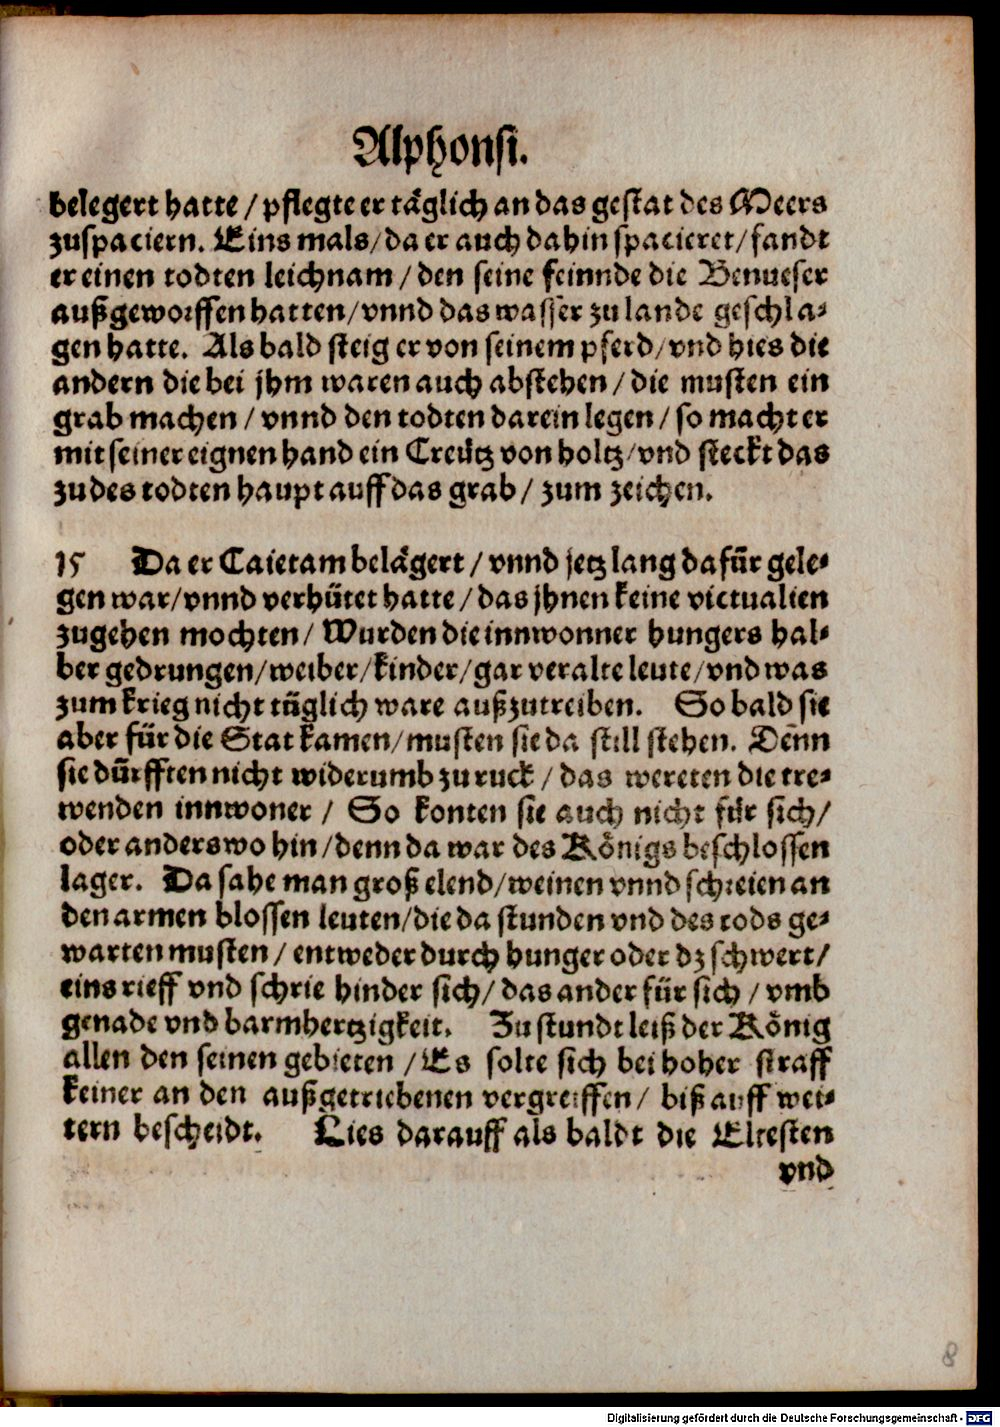 Alphonsi.
belegert hatte / pflegte er täglich an das gestat des Meers
zuspaciern. Eins mals/da er auch dahin spacieret/fandt
er einen todten leichnam / den seine feinnde die Benueser
außgeworffen hatten/vnnd das wasser zu lande geschla-
gen hatte. Als bald steig er von seinem pferd/vnd hies die
andern die bei jhm waren auch abstehen / die musten ein
grab machen / vnnd den todten darein legen / so macht er
mit seiner eignen hand ein Creütz von holtz/vnd steckt das
zu des todten haupt auff das grab / zum zeichen.
15 Da er Caietam belägert / vnnd jetz lang dafür gele-
gen war/vnnd verhütet hatte / das jhnen keine victualien
zugehen mochten / Wurden die innwonner hungers hal-
ber gedrungen/weiber/kinder/gar veralte leute/vnd was
zum krieg nicht täglich ware außzutreiben. So bald sie
aber für die Stat kamen/musten sie da still stehen. Denn
sie dürfften nicht widerumb zu ruck / das wereten die tre-
wenden innwoner / So konten sie auch nicht für sich/
oder anderswo hin/denn da war des Königs beschlossen
lager. Da sahe man groß elend/weinen vnnd schreien an
den armen blossen leuten/die da stunden vnd des tods ge-
warten musten / entweder durch hunger oder dz schwert/
eins rieff vnd schrie hinder sich/ das ander für sich / vmb
genade vnd barmhertzigkeit. Zu stundt leiß der König
allen den seinen gebieten / Es solte sich bei hoher straff
keiner an den außgetriebenen vergreiffen / biß auff wei-
tern bescheidt. Lies darauff als baldt die Eltesten
vnd
8
Digitalisierung gefördert durch die Deutsche Forschungsgemeinschaft - DFG